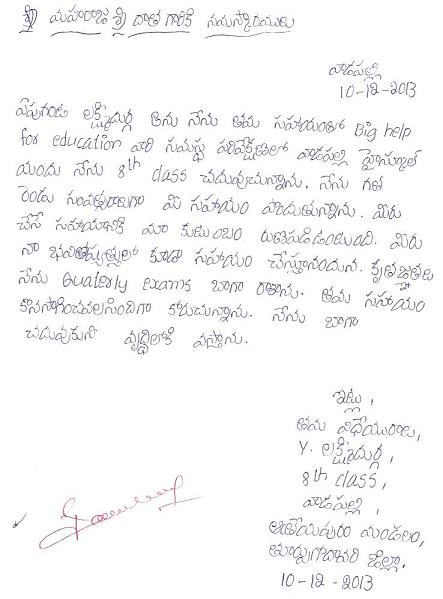 శ్రీ మహారాజ శ్రీ దాత గారికి నమస్కారములు
వాడపల్లి
10-12-2013
ఏపుగంటి లక్ష్మిదుర్గ అను నేను తమ సహాయంతో Big help
for education వారి సమస్థ పరివేక్షణలో వాడపల్లి హైస్కూల్
యందు నేను 8th class చదువుచున్నాను. నేను గత
రెండు సంవత్సరాలుగా మి సహాయం పొందుతున్నాను. మిరు
చేసే సహాయానికి మా కుటుంబం రుణపడిఉంటుంది. మిరు
నా భవిత్యత్తులో కుడా సహాయం చేస్తూనందున. కృతజ్ఞతలు
నేను Quaterly exams బాగా రాశాను. తమ సహాయం
కొనసాగించవలసిందిగా కోరుచున్నాను. నేను బాగా
చదువుకుని వృద్ధిలోకి వస్తాను.
ఇట్లు,
తమ విధేయురాలు,
Y. లక్ష్మిదుర్గ,
8th class,
వాడపల్లి,
ఆత్రేయపురం మండలం,
తూర్పుగోదావరి జిల్లా.
10-12-2013